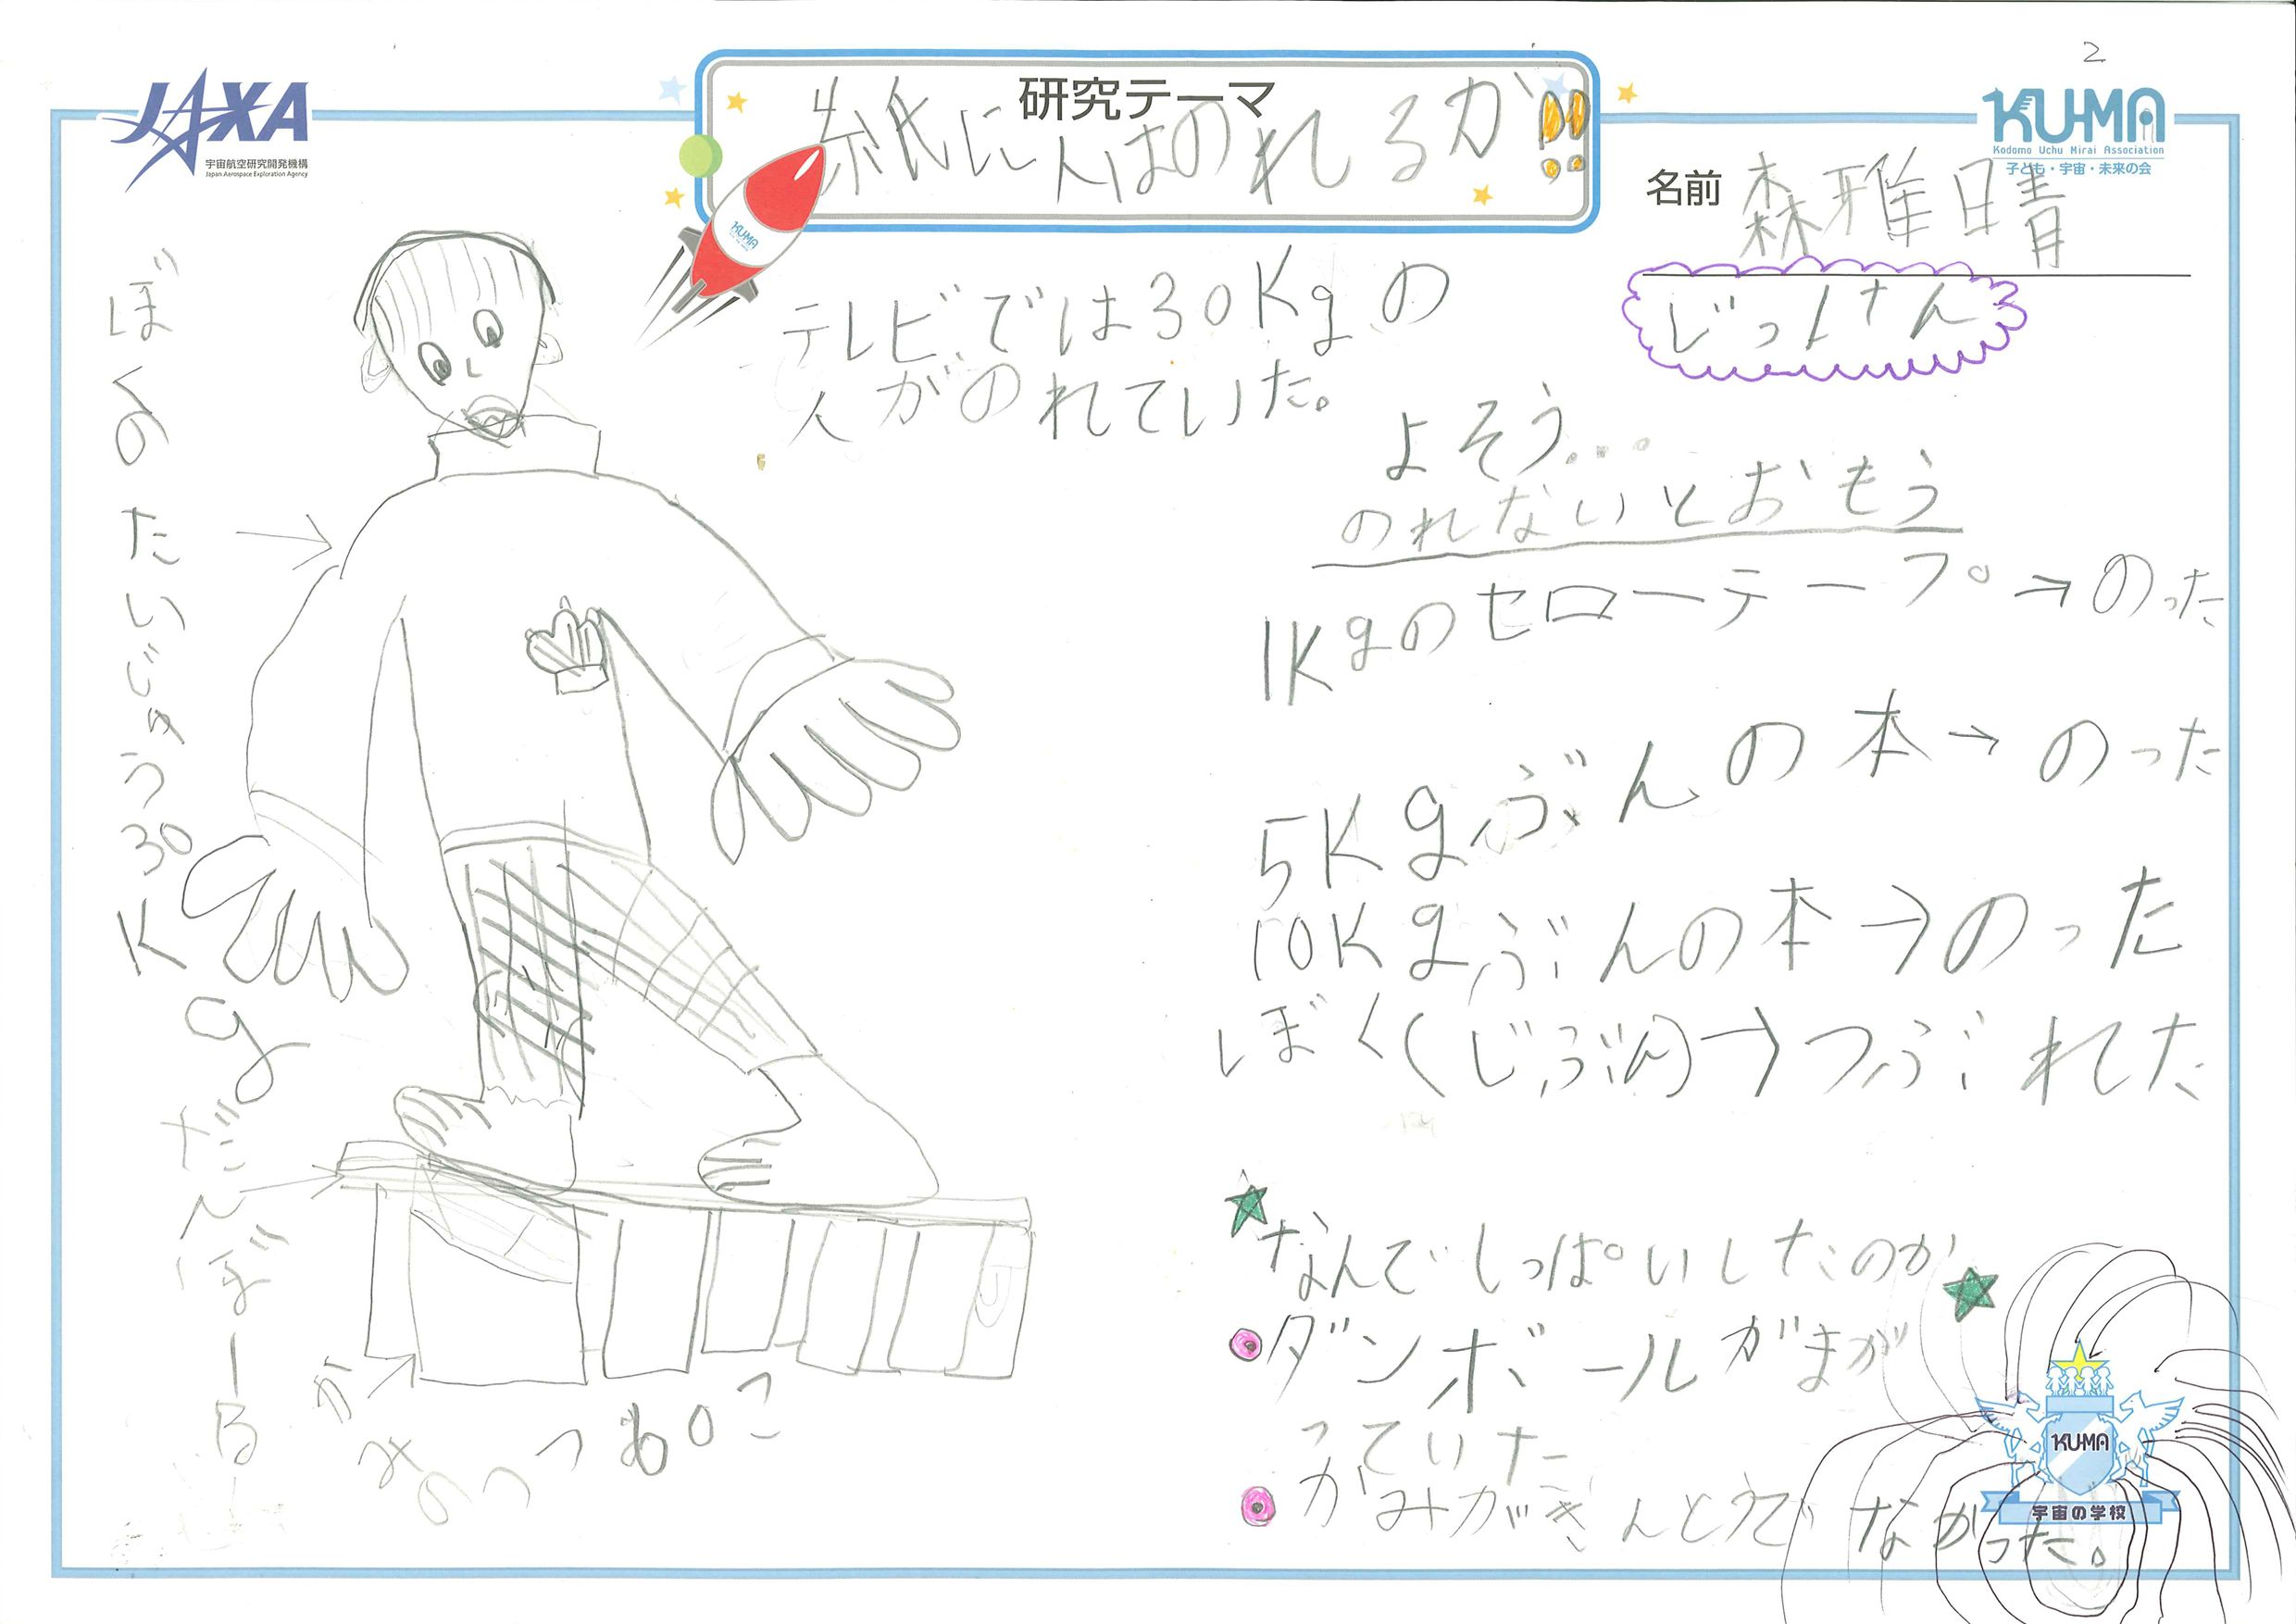 2
JAXA
宇宙航空研究開発機構
Japan Aerospace Exploration Agency
研究テーマ
紙に人はのれるか!!
KUMA
KU-MA
Kodomo Uchu Mirai Association
子ども・宇宙・未来の会
名前 森雅晴
じっけん
テレビでは30Kgの
人がのれていた。
よそう...
のれないとおもう
1Kgのセローテープ→のった
5Kgぶんの本→のった
10Kgぶんの本→のった
ぼく(じぶん)→つぶれた
ぼくのたいじゅう30Kg
だんぼーる
かみのつつ
★なんでしっぱいしたのか★
ダンボールがまが
っていた
かみがきんとうでなかった。
KU-MA
宇宙の学校